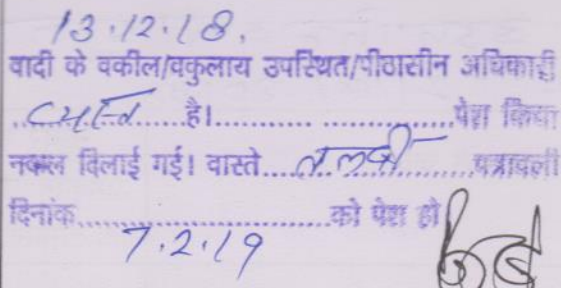 13.12.18.
वादी के वकील/वकुलाय उपस्थित/पीठासीन अधिकारी
..व्यस्त......है।............ ................पेश किया
नकल दिलाई गई। वास्ते....तलबी.......पत्रावली
दिनांक..............................को पेश हो
7.2.19